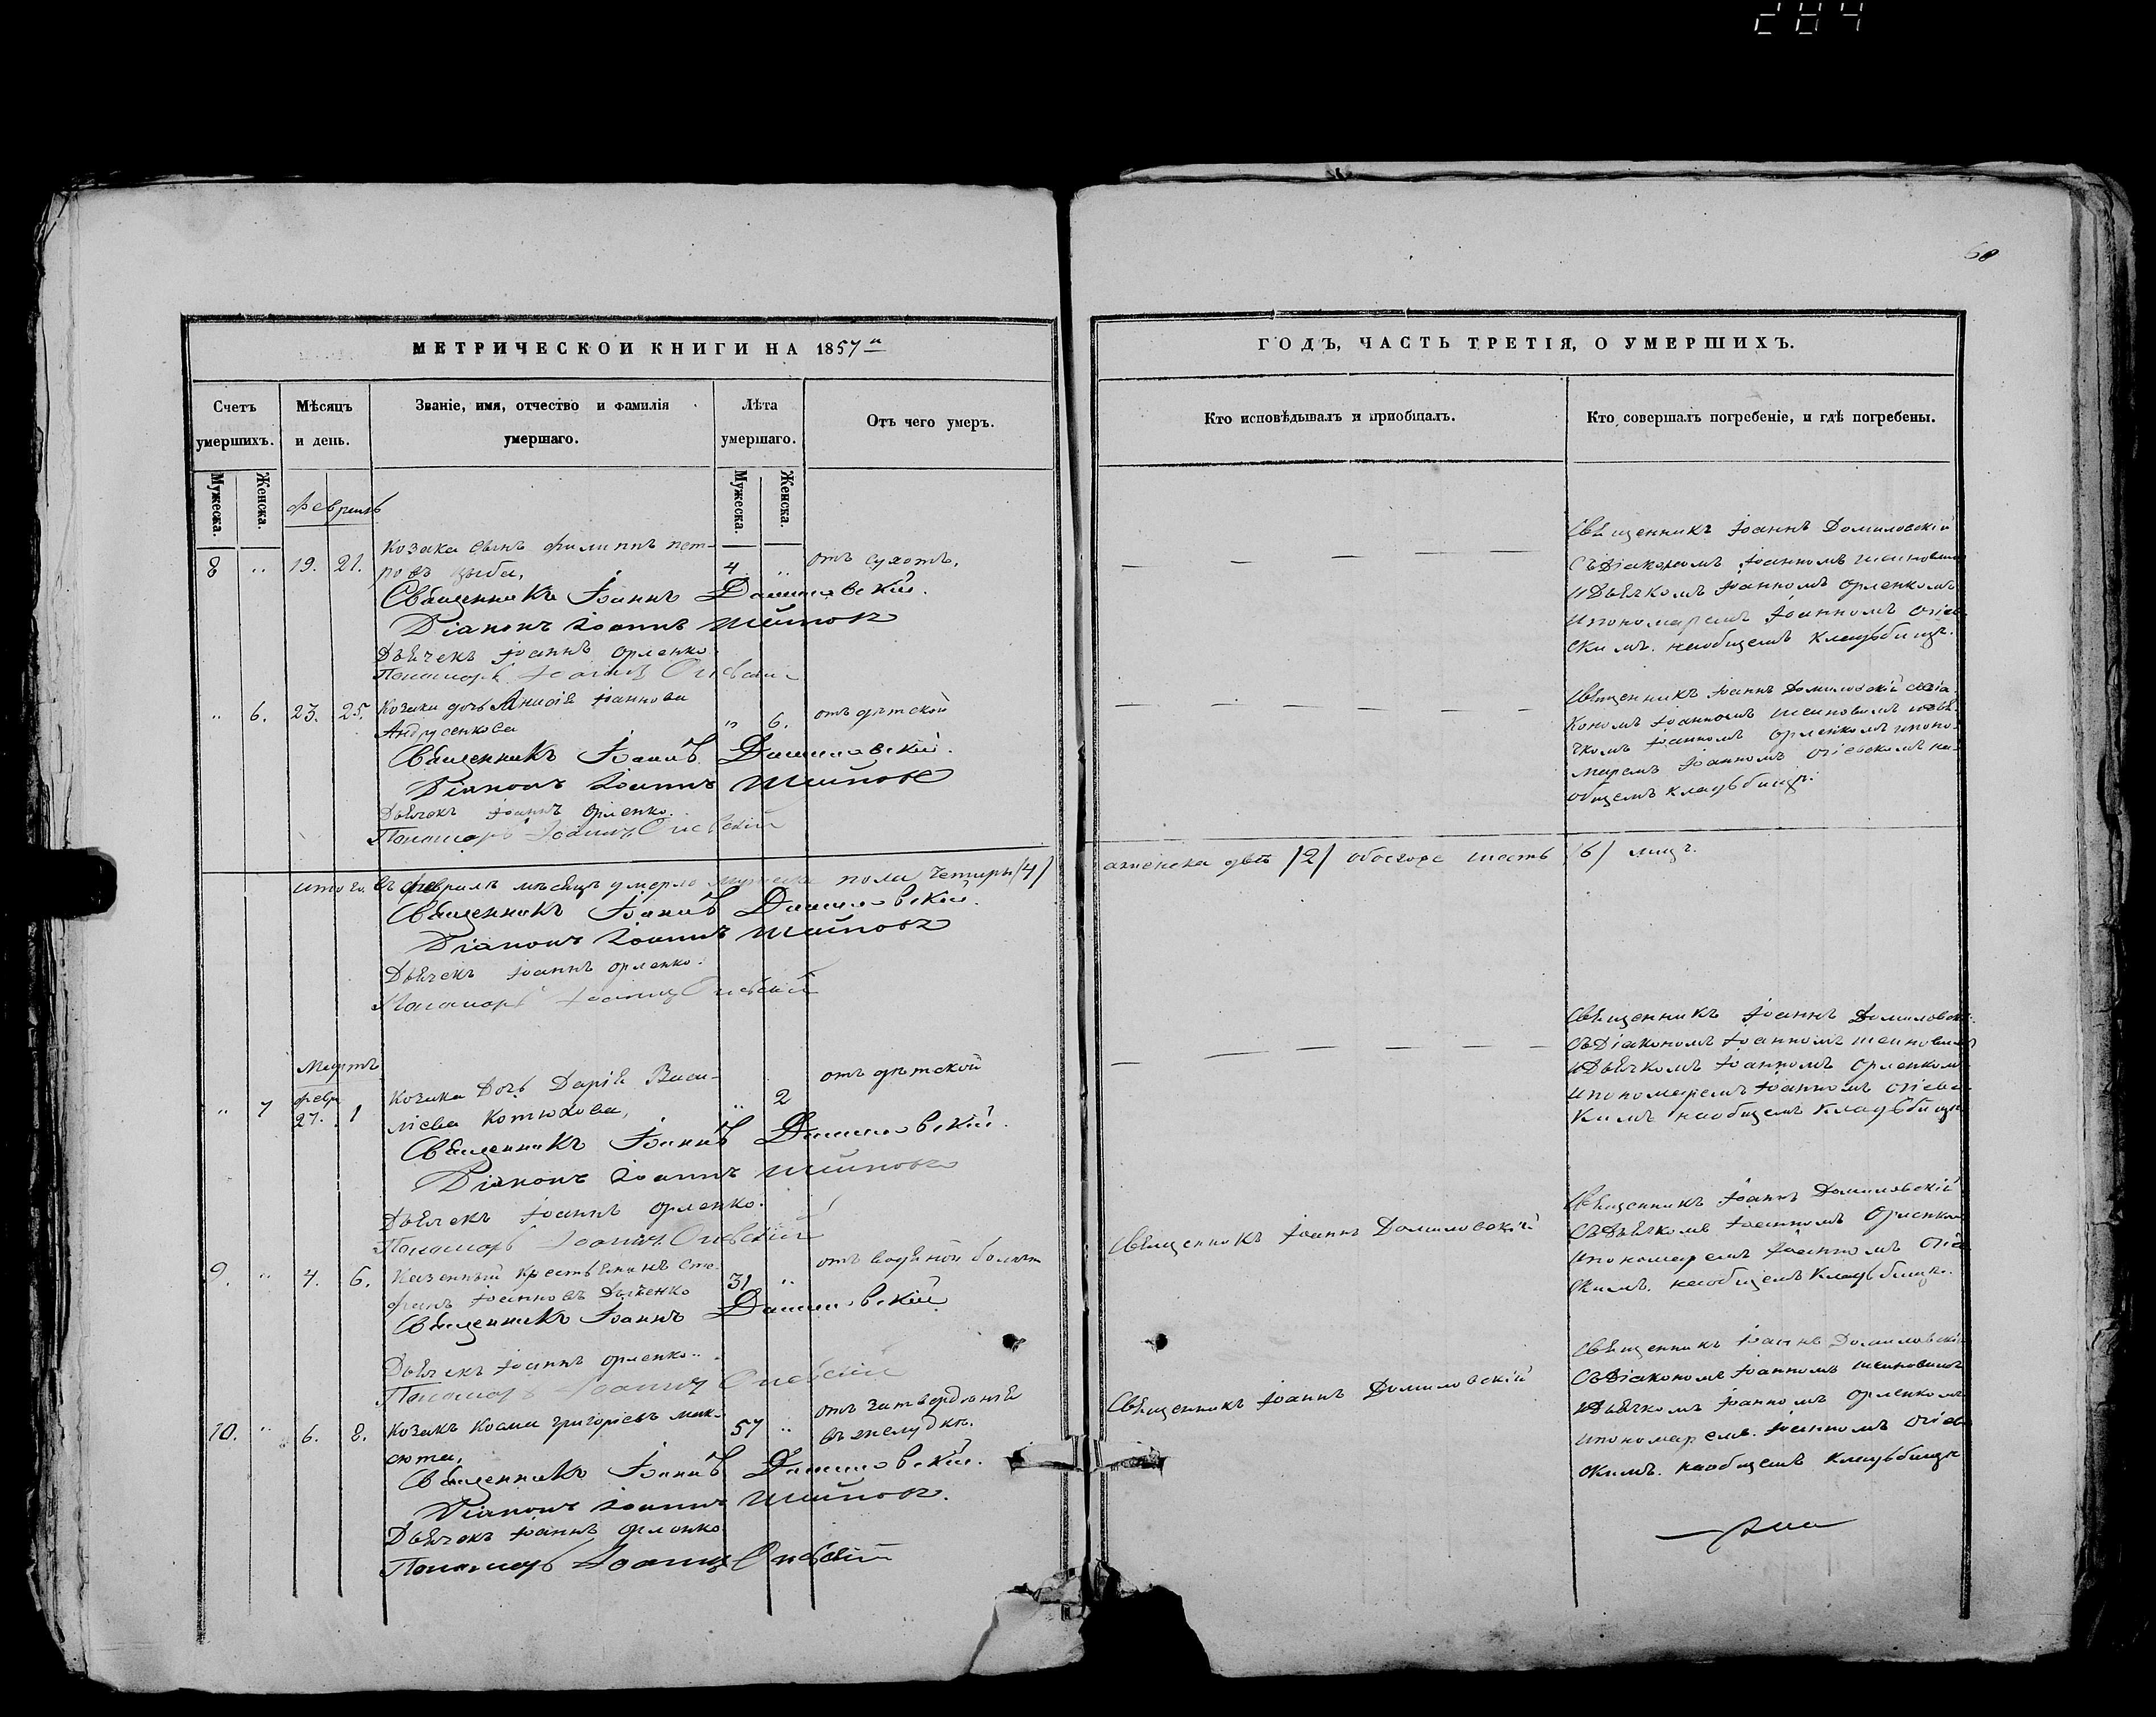 284
60
МЕТРИЧЕСКОЙ КНИГИ НА 1857й
Счетъ умершихъ.
Мѣсяцъ и день.
Званіе, имя, отчество и фамилія умершаго.
Лѣта умершаго.
Отъ чего умеръ.
Мужеска.
Женска.
Мужеска.
Женска.
Февраль
Козака сынъ Филиппъ Пет-
8 „ 19. 21. ровъ Цыба, 4 „ отъ сухотъ.
Священникъ Іоаннъ Домиловскій.
Діаконъ Іоаннъ
Дьячекъ Іоаннъ Орленко
Пономарь Іоаннъ
„ 6. 23. 25. Козака дочь Анисія Іоаннова „ 6. отъ дѣтской
Андрусенкова
Священникъ Іоаннъ Домиловскій.
Діаконъ Іоаннъ
Дьячекъ Іоаннъ Орленко.
Пономарь Іоаннъ
Итого въ Февралѣ мѣсяцѣ умерло мужеска пола четыри /4/
Священникъ Іоаннъ Домиловскій.
Діаконъ Іоаннъ
Дьячекъ Іоаннъ Орленко.
Пономарь Іоаннъ
Мартъ
февр.
„ 7 27. 1 Козака дочь Дарія Васи- „ 2 отъ дѣтской
ліева Котюхова,
Священникъ Іоаннъ Домиловскій.
Діаконъ Іоаннъ
Дьячекъ Іоаннъ Орленко.
Пономарь Іоаннъ
9. „ 4. 6. Казенный крестьянинъ Сте- 31 „ отъ водяной болѣзн
фанъ Іоанновъ Дяченко
Священникъ Іоаннъ Домиловскій
Дьячекъ Іоаннъ Орленко.
Пономарь Іоаннъ
10. „ 6. 8. Козакъ Косма Григоріевъ Мак- 57 „ отъ затвердѣнія
сюта, въ желудкѣ.
Священникъ Іоаннъ Домиловскій.
Діаконъ Іоаннъ
Дьячекъ Іоаннъ Орленко
Пономарь Іоаннъ
ГОДЪ, ЧАСТЬ ТРЕТІЯ, О УМЕРШИХЪ.
Кто исповѣдывалъ и пріобщалъ.
Кто совершалъ погребеніе, и гдѣ погребены.
Священникъ Іоаннъ Домиловскій
Съ Діакономъ Іоанномъ
и Дьячкомъ Іоанномъ Орленкомъ
и пономаремъ Іоанномъ
скимъ. на общемъ кладьбищѣ.
Священникъ Іоаннъ Домиловскій с Діа
кономъ Іоанномъ и Дья
чкомъ Іоанномъ Орленкомъ и поно-
маремъ Іоанномъ на-
общемъ кладьбищѣ
а женска двѣ /2/ обоегоже шесть /6/ лицъ.
Священникъ Іоаннъ Домиловск
Съ Діакономъ Іоанномъ
и Дьячкомъ Іоанномъ Орленком
и пономаремъ Іоанномъ
кимъ на общемъ кладьбищѣ
Священникъ Іоаннъ Домиловскій
Священникъ Іоаннъ Домиловскій
Съ Дьячкомъ Іоанномъ Орленком
и пономаремъ Іоанномъ
скимъ. на общемъ кладьбищѣ.
Священникъ Іоаннъ Домиловскій
Священникъ Іоаннъ Домиловскі
Съ Діакономъ Іоанномъ
и Дьячкомъ Іоанномъ Орленкомъ
и пономаремъ Іоанномъ
скимъ. на общемъ кладьбищѣ